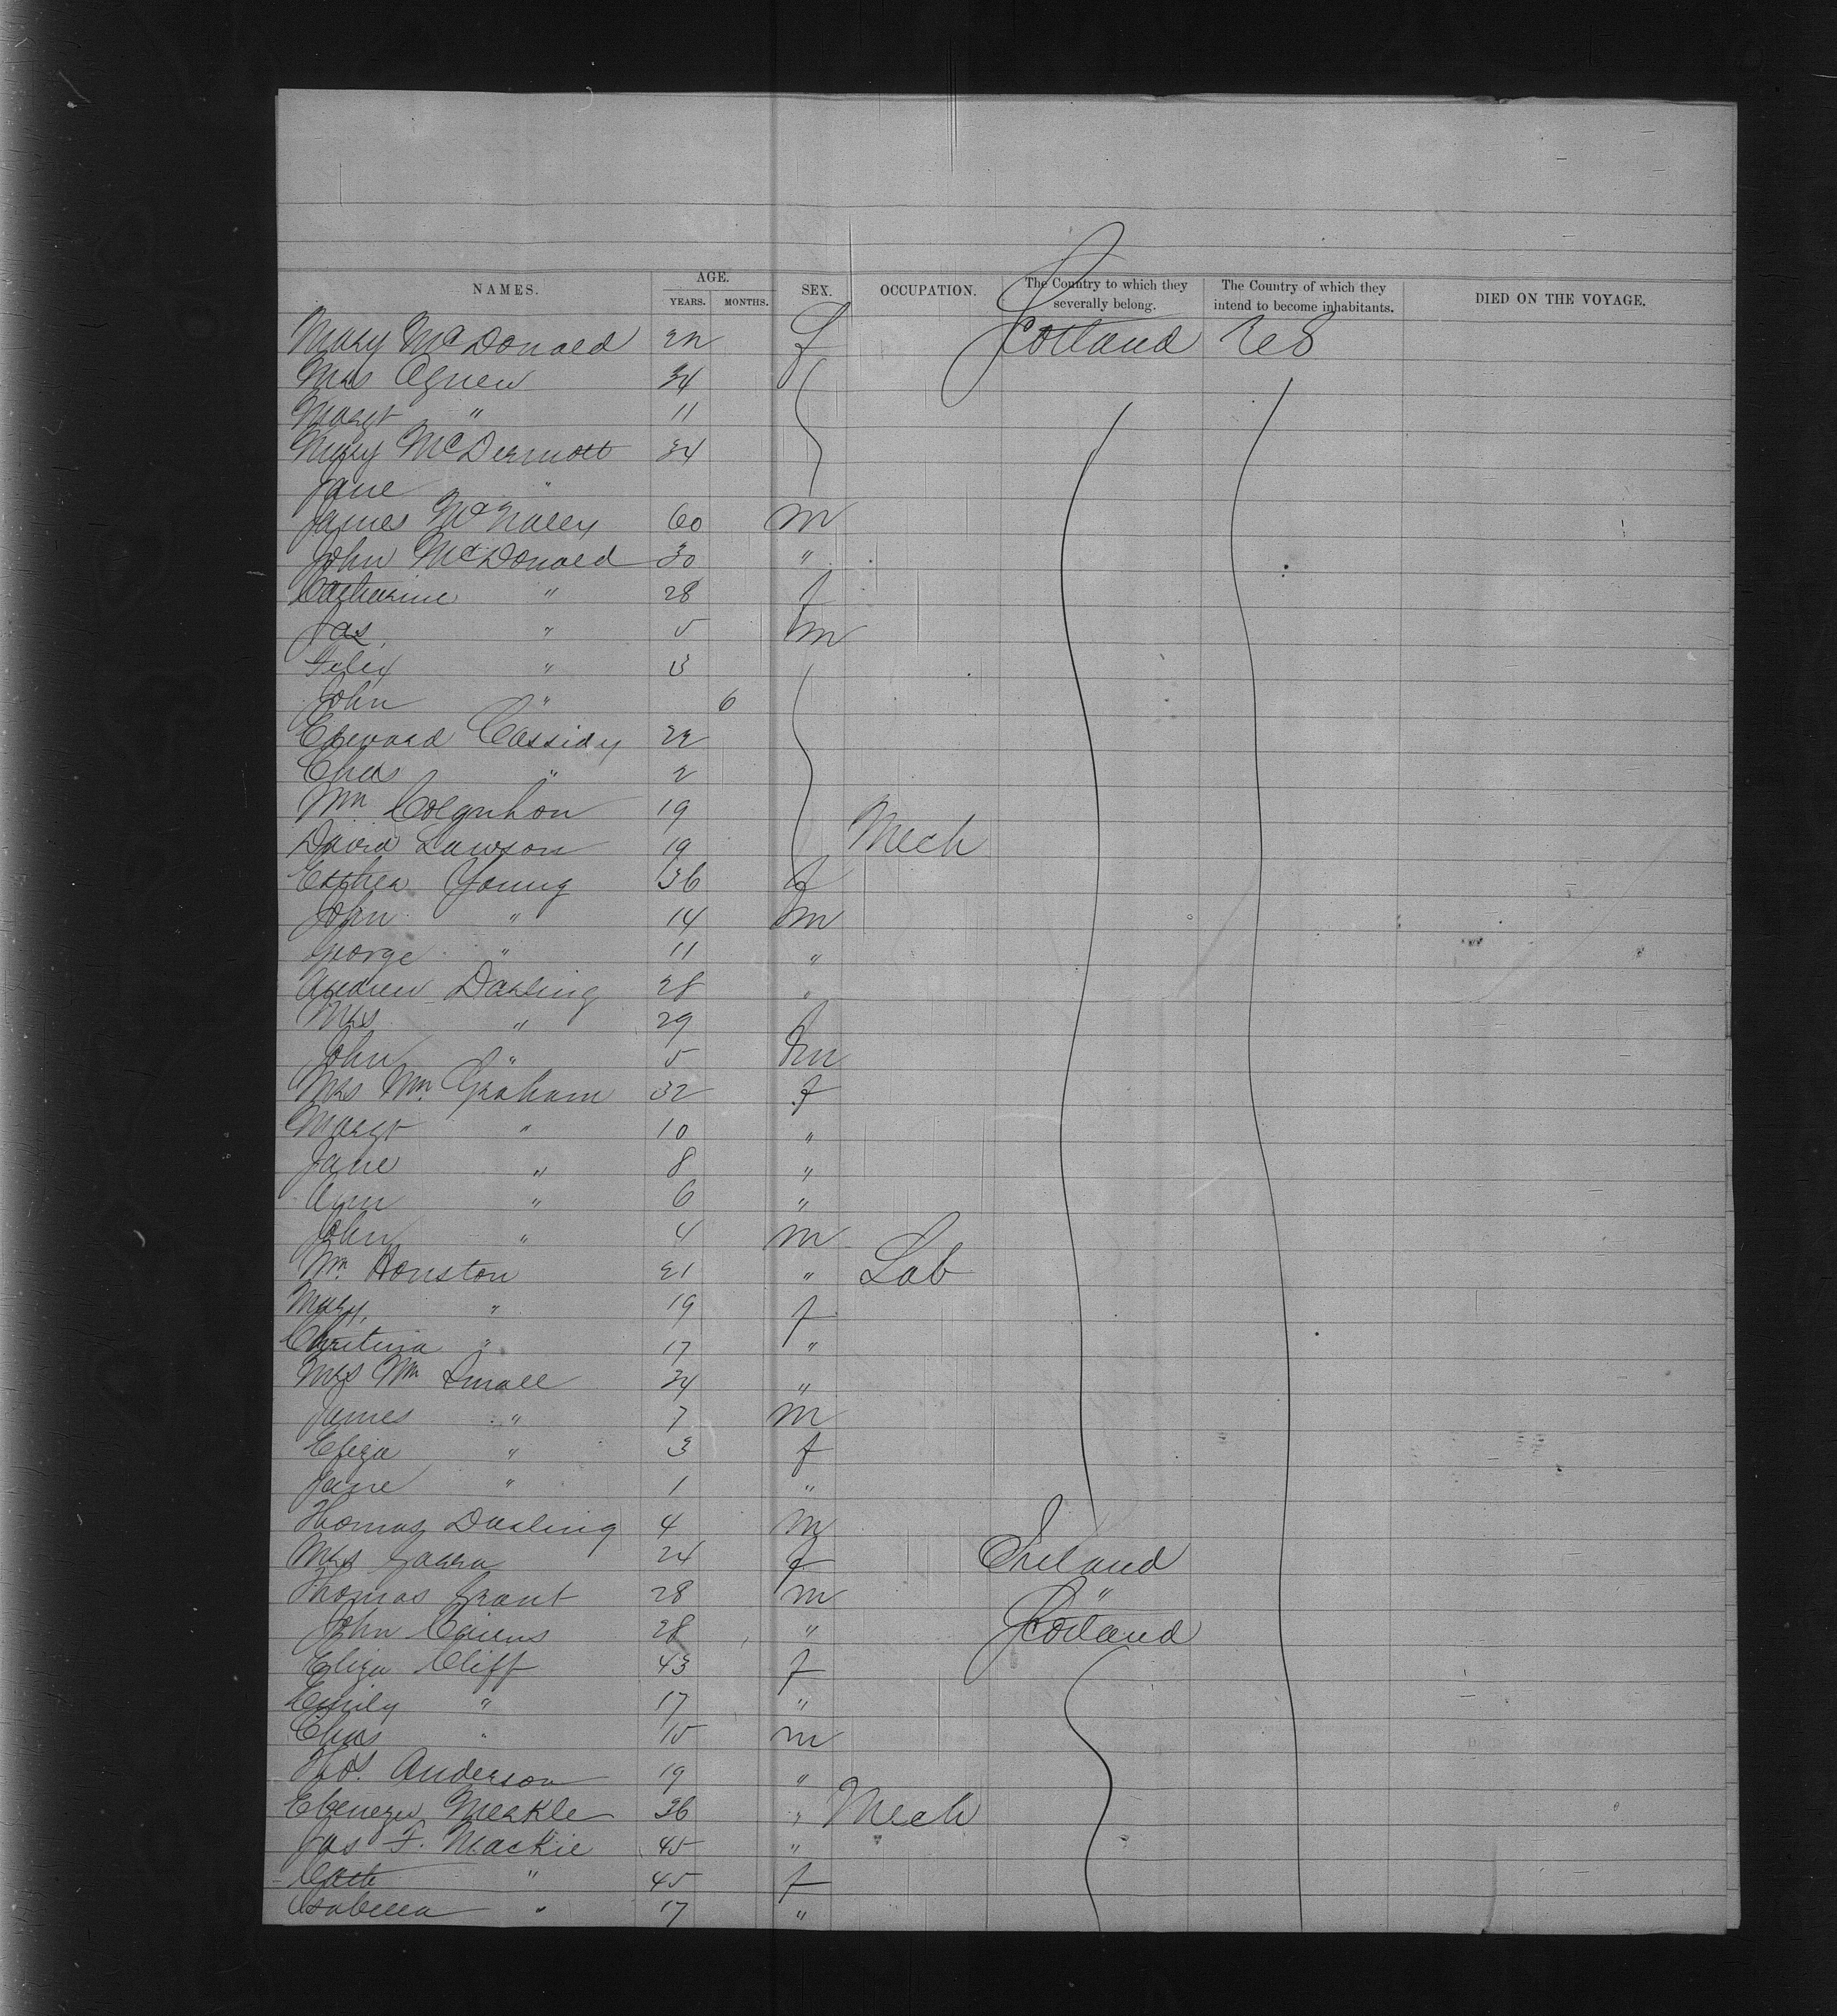 NAMES. AGE. YEARS. MONTHS. SEX. OCCUPATION. The Country to which they severally belong. The Country of which they intend to become inhabitants. DIED ON THE VOYAGE.
Mary McDonald 22 f Scotland US
Mrs Agnew 34
Margt " 11
Mary McDermott 34
Jane "
James McNally 60 m
John McDonald 30 "
Catharine " 28 f
Jas " 5 m
Felix " 3
John " 6
Edward Cassidy 22
Chas " 2
Wm Colquhon 19
David Lawson 19 Mech
Esther Young 36 f
John " 14 m
George " 11 "
Andrew Darling 28 "
Mrs " 29 f
John " 5 m
Mrs Wm Graham 32 f
Margt " 10 "
Jane " 8 "
Ann " 6 "
John " 4 m
Wm Houston 21 " Lab
Mary " 19 f
Christina " 17 "
Mrs Wm Small 34 "
James " 7 m
Eliza " 3 f
Jane " 1 "
Thomas Darling 4 m
Mrs 24 f Ireland
Thomas Grant 28 m "
John Cairns 28 " Scotland
Eliza Cliff 43 f
Emily " 17 "
Chas " 15 m
Thos. Anderson 19 "
Ebenezer Merkle 36 " Mech
Jas F. Mackie 45 "
Cath " 45 f
Isabella " 17 "